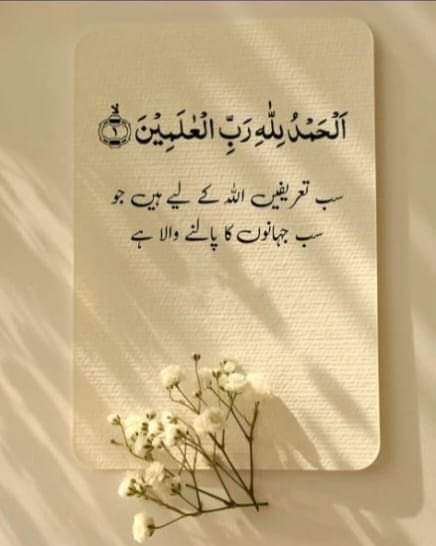 اَلْحَمْدُ لِلّٰهِ رَبِّ الْعٰلَمِيْنَ ۙ﴿۱﴾
سب تعریفیں اللہ کے لیے ہیں جو
سب جہانوں کا پالنے والا ہے